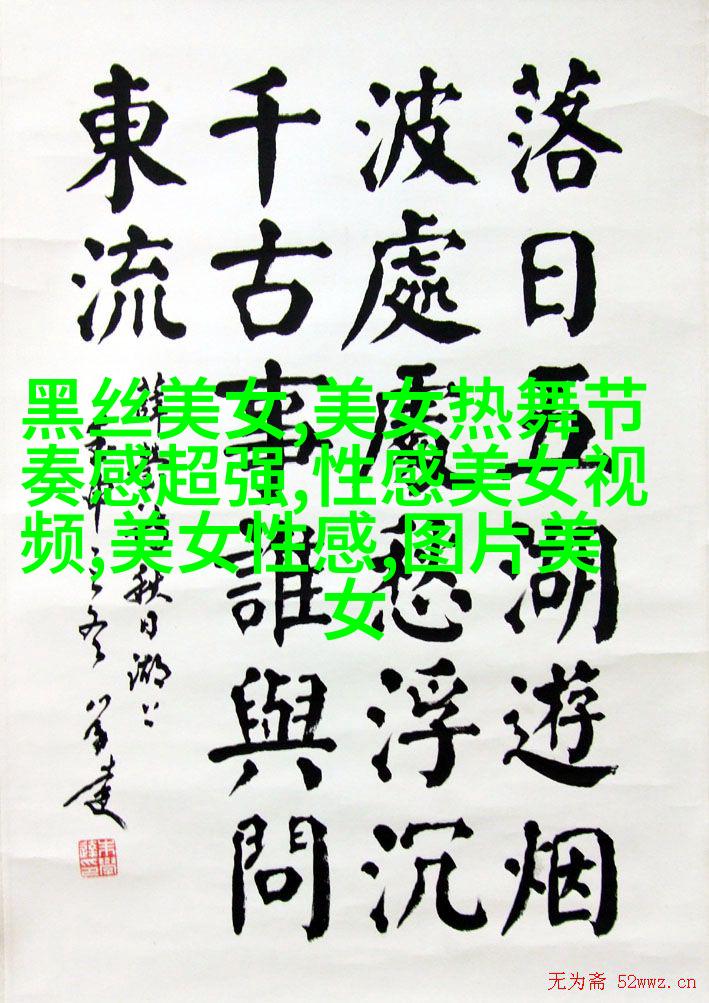 落日五湖遊烟
波處處愁浮沉
千古事誰與問
東流
秋日湖上
冬
黑丝美女,美女热舞节
奏感超强,性感美女视
频,美女性感,图片美
女
无为斋 52wwz.cn